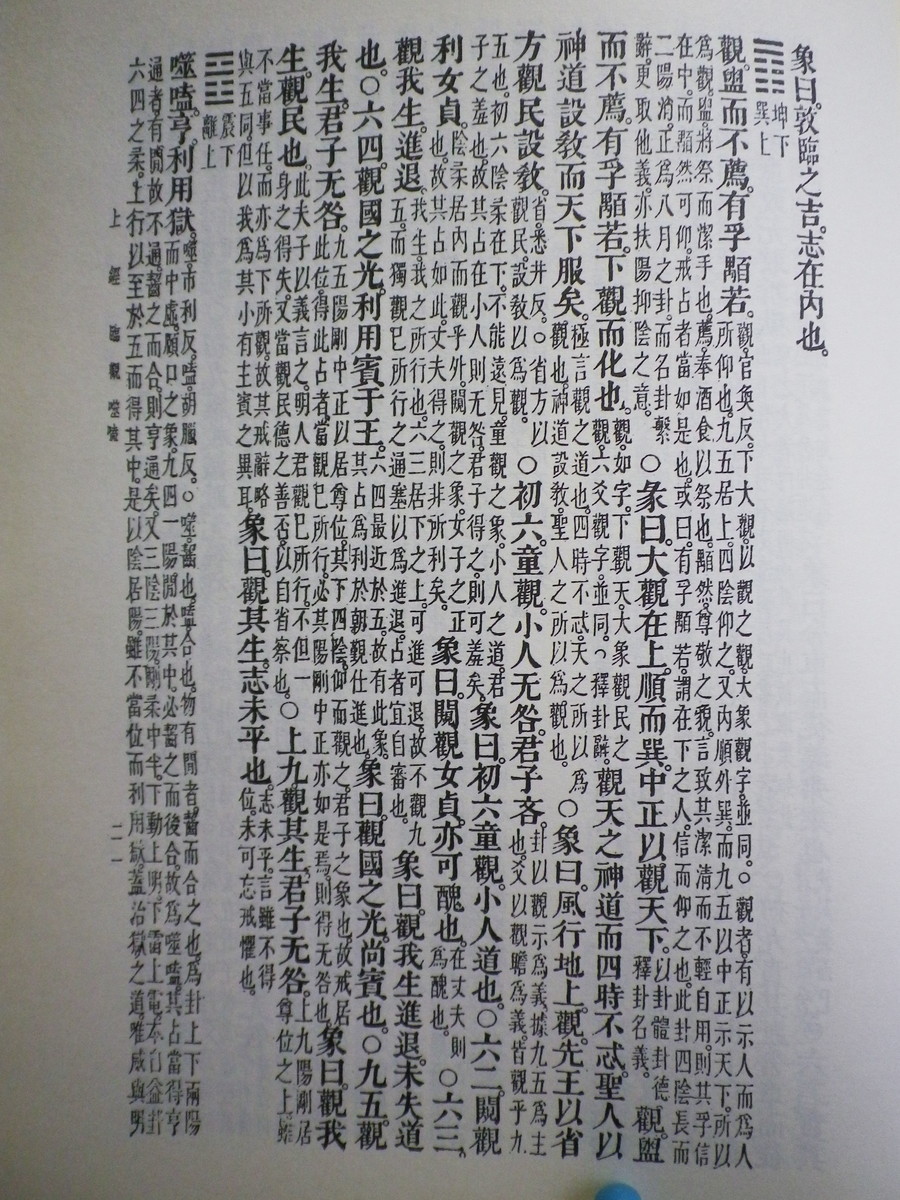 象曰。敦臨之吉。志在内也。
䷓ 坤下巽上
觀。盥而不薦。有孚顒若。觀。官奐反。下大觀。以觀之觀。大象觀字。並同。○觀者。有以示人而爲人所仰也。九五居上。四陰仰之。又内順外巽。而九五以中正示天下。所以
爲觀。盥。將祭而潔手也。薦。奉酒食以祭也。顒然。尊敬之貌。言致其潔清而不輕自用。則其孚信在中。而顒然可仰。戒占者當如是也。或曰。有孚顒若。謂在下之人。信而仰之也。此卦四陰長而
二陽消。正爲八月之卦。而名卦繫辭。更取他義。亦扶陽抑陰之意。○彖曰。大觀在上。順而巽。中正以觀天下。以卦體卦德釋卦名義。觀盥
而不薦。有孚顒若。下觀而化也。觀。如字。下觀天。大象觀民之觀。六爻觀字。並同。○釋卦辭。觀天之神道而四時不忒。聖人以
神道設敎而天下服矣。極言觀之道也。四時不忒。天之所以爲觀也。神道設敎。聖人之所以爲觀也。○象曰。風行地上。觀。先王以省
方觀民設敎。省。悉井反。○省方以觀民。設敎以爲觀。○初六。童觀。小人无咎。君子吝。卦以觀示爲義。據九五爲主也。爻以觀瞻爲義。皆觀乎九
五也。初六陰柔在下。不能遠見。童觀之象。小人之道。君子之羞也。故其占在小人則无咎。君子得之。則可羞矣。象曰。初六童觀。小人道也。○六二。闚觀
利女貞。陰柔居内而觀乎外。闚觀之象。女子之正也。故其占如此。丈夫得之。則非所利矣。象曰。闚觀女貞。亦可醜也。在丈夫則爲醜也。○六三。
觀我生。進退。我生。我之所行也。六三居下之上。可進可退。故不觀九五。而獨觀已所行之通塞以爲進退。占者宜自審也。象曰。觀我生進退。未失道
也。○六四。觀國之光。利用賓于王。六四最近於五。故有此象。其占爲利於朝覲仕進也。象曰。觀國之光。尚賓也。○九五。觀
我生。君子无咎。九五陽剛中正以居尊位。其下四陰。仰而觀之。君子之象也。故戒居此位。得此占者。當觀已所行。必其陽剛中正。亦如是焉。則得无咎也。象曰。觀我
生。觀民也。此夫子以義言之。明人君觀已所行。不但一身之得失。又當觀民德之善否。以自省察也。○上九。觀其生。君子无咎。上九陽剛居尊位之上。雖
不當事任。而亦爲下所觀。故其戒辭略與五同。但以我爲其。小有主賓之異耳。象曰。觀其生。志未平也。志未平。言雖不得位。未可忘戒懼也。
䷔ 震下離上
噬嗑。亨。利用獄。噬。市利反。嗑。胡臘反。○噬。齧也。嗑。合也。物有閒者。齧而合之也。爲卦上下兩陽而中虛。頤口之象。九四一陽閒於其中。必齧之而後合。故爲噬嗑。其占當得亨
通者。有閒故不通。齧之而合。則亨通矣。又三陰三陽。剛柔中半。下動上明。下雷上電。本自益卦六四之柔。上行以至於五而得其中。是以陰居陽。雖不當位而利用獄。蓋治獄之道。唯威與明
上經 臨 觀 噬嗑
二一